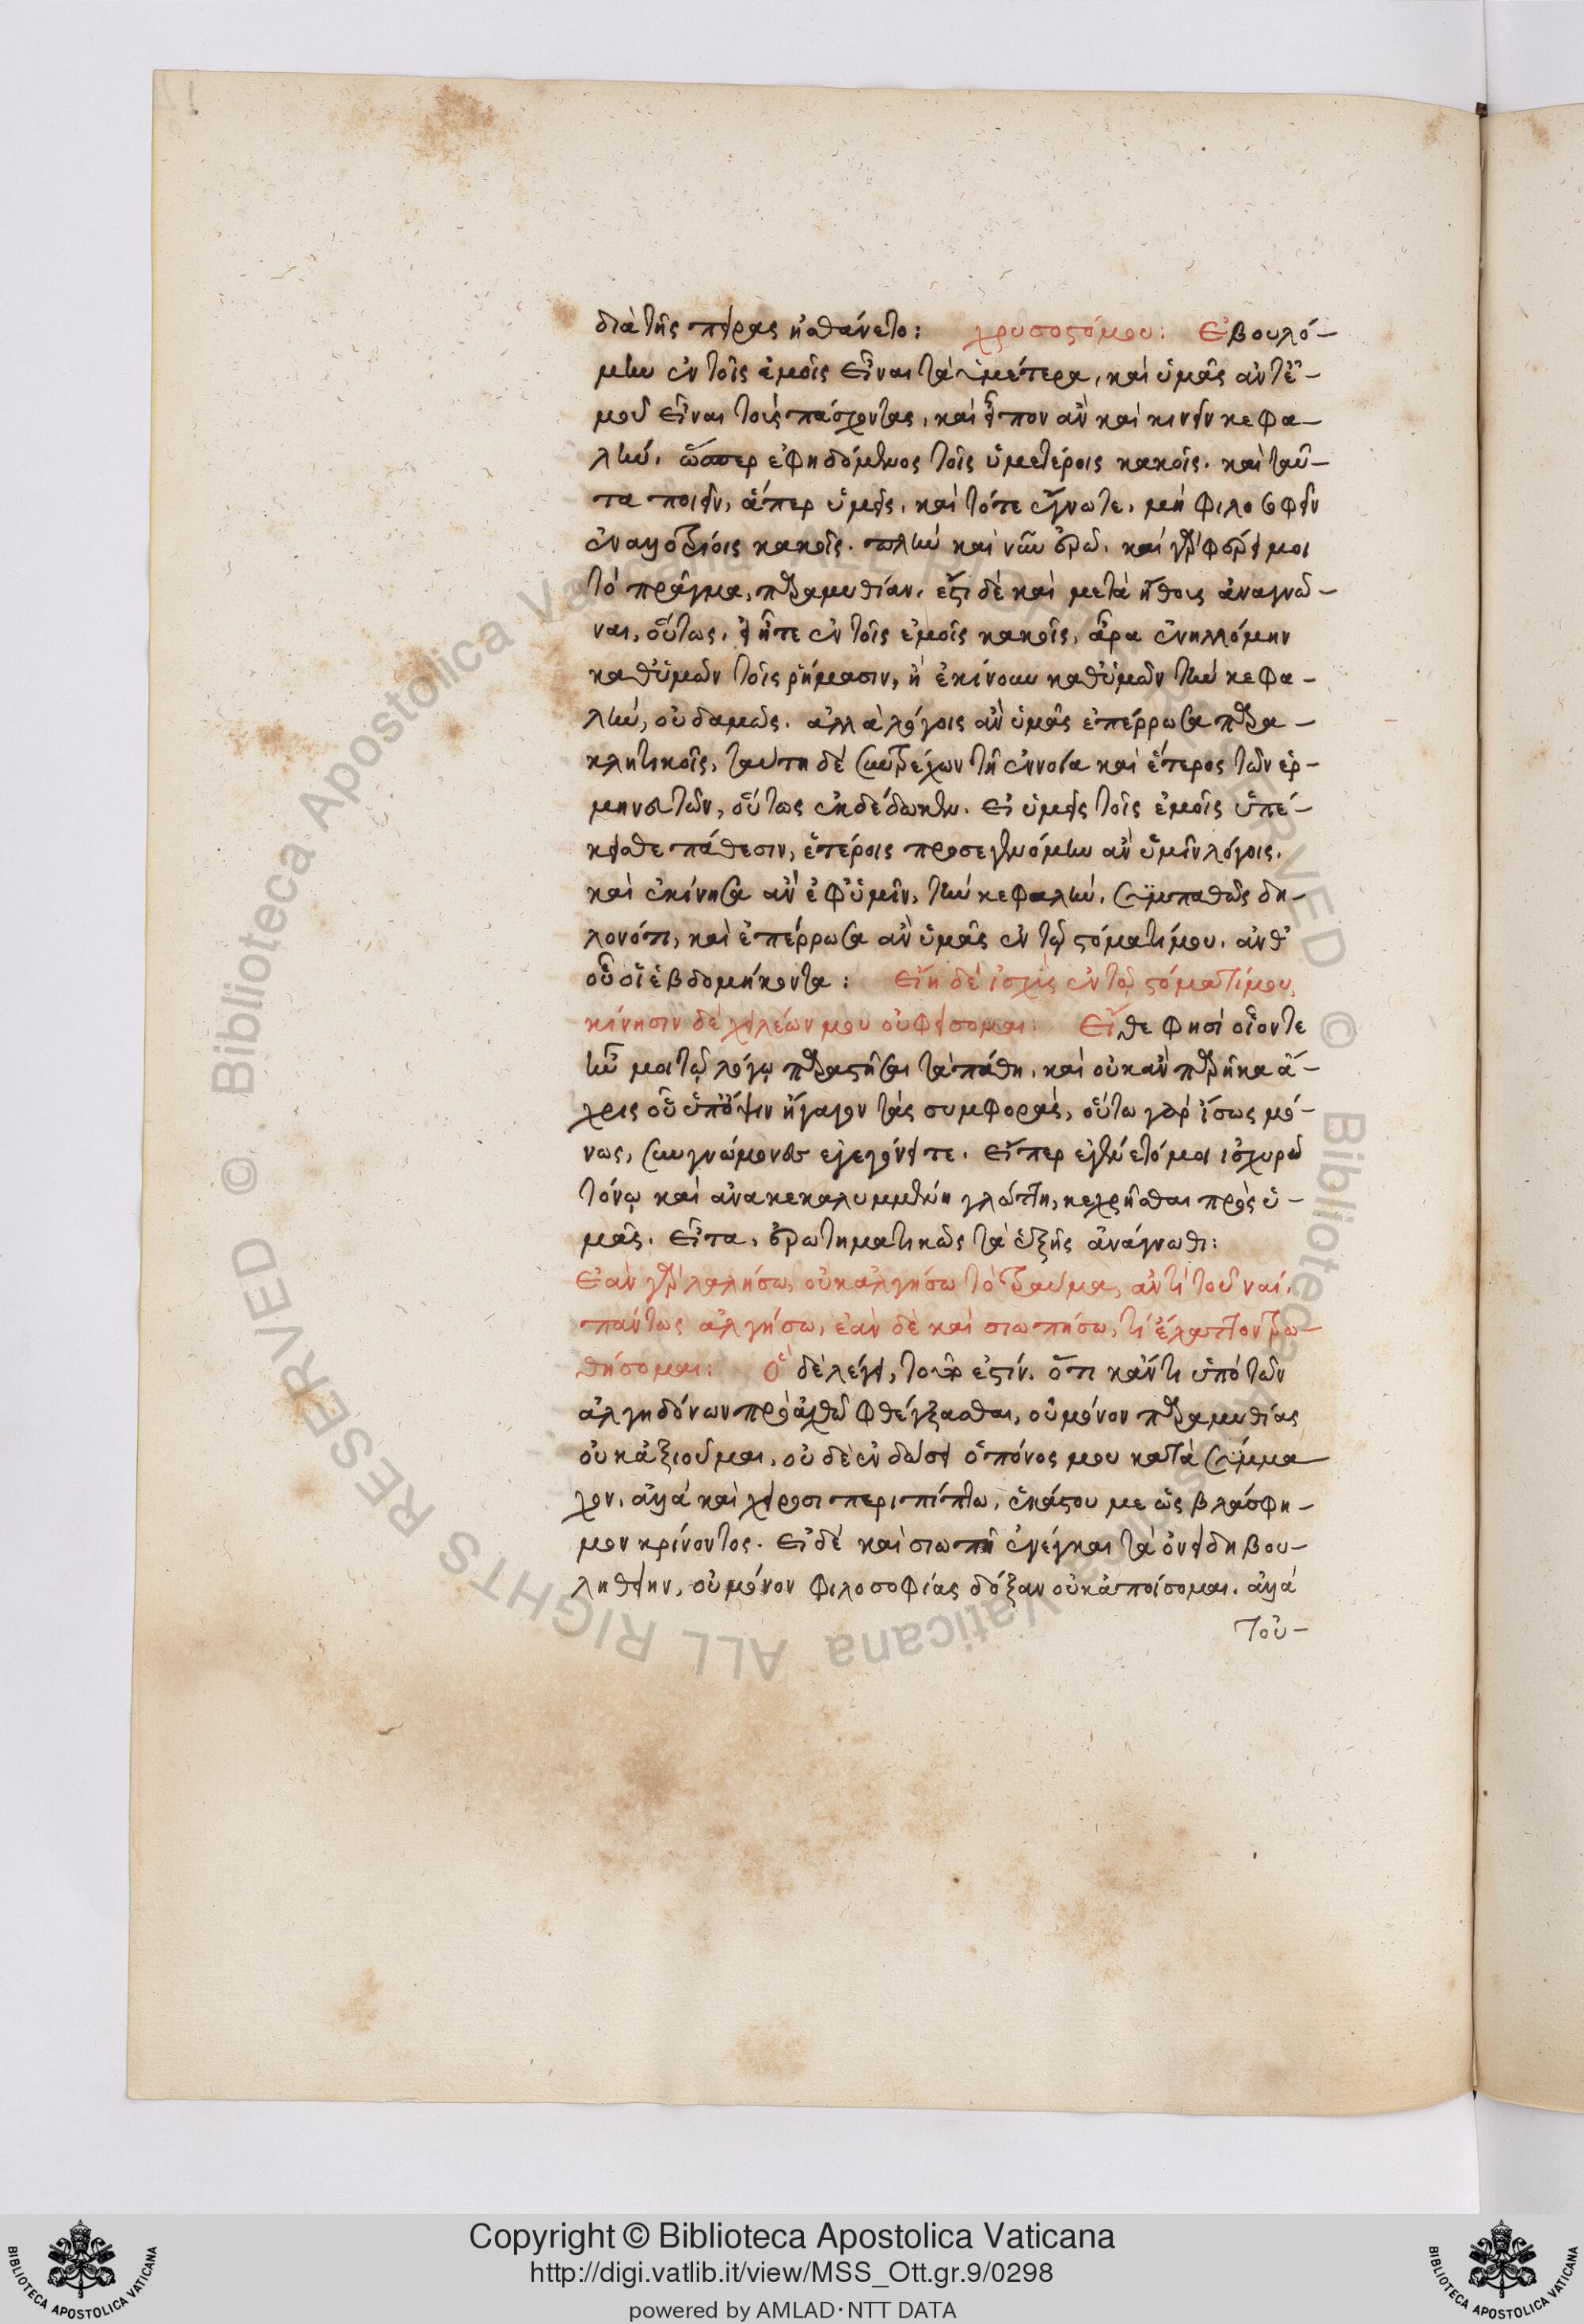 διὰ τῆς πείρας ᾐσθάνετο: χρυσοστόμου: Ἐβουλό-
μην ἐν τοῖς ἐμοῖς εἶναι τὰ ὑμέτερα, καὶ ὑμᾶς ἀντ' ἐ-
μοῦ εἶναι τοὺς πάσχοντας, καὶ εἶπον ἂν καὶ κινεῖν κεφα-
λήν. ὥσπερ ἐφηδόμενος τοῖς ὑμετέροις κακοῖς. καὶ ταῦ-
τα ποιεῖν, ἅπερ ὑμεῖς, καὶ τότε ἔγνωτε, μὴ φιλοσοφεῖν
ἐν ἀλλοτρίοις κακοῖς. πλὴν καὶ νῦν ὁρῶ. καὶ γὰρ φέρει μοι
τὸ πρᾶγμα, παραμυθίαν. ἔστι δὲ καὶ μετὰ ἤθους ἀναγνῶ-
ναι, οὕτως. εἰ ἦτε ἐν τοῖς ἐμοῖς κακοῖς, ἆρα ἐνηλλόμην
καθ' ὑμῶν τοῖς ῥήμασιν, ἢ ἐκίνουν καθ' ὑμῶν τὴν κεφα-
λήν, οὐδαμῶς. ἀλλὰ λόγοις ἂν ὑμᾶς ἐπέρρωσα παρα-
κλητικοῖς, ταύτῃ δὲ συντρέχων τῇ ἐννοίᾳ καὶ ἕτερος τῶν ἑρ-
μηνευτῶν, οὕτως ἐκδέδωκεν. Εἰ ὑμεῖς τοῖς ἐμοῖς ὑπέ-
κεισθε πάθεσιν, ἑτέροις προσεγενόμην ἂν ὑμῖν λόγοις.
καὶ ἐκίνησα ἂν ἐφ' ὑμῖν, τὴν κεφαλήν. συμπαθῶς δη-
λονότι, καὶ ἐπέρρωσα ἂν ὑμᾶς ἐν τῷ στόματί μου. ἀνθ'
οὗ οἱ ἑβδομήκοντα: Εἴη δὲ ἰσχὺς ἐν τῷ στόματί μου,
κίνησιν δὲ χειλέων μου οὐ φείσομαι: Εἴθε φησὶ οἷόν τε
ἦν μοι τῷ λόγῳ παραστῆσαι τὰ πάθη, καὶ οὐκ ἂν παρῆκα ἄ-
χρις οὗ ὑπ' ὄψιν ἤγαγον τὰς συμφοράς, οὕτω γὰρ ἴσως μό-
νως, συγνώμονες ἐγεγόνειτε. Εἴπερ ἐγένετό μοι ἰσχυρῷ
τόνῳ καὶ ἀνακεκαλυμμένῃ γλώττῃ, κεχρῆσθαι πρὸς ὑ-
μᾶς. Εἶτα, ἐρωτηματικῶς τὰ ἑξῆς ἀνάγνωθι:
Ἐὰν γὰρ λαλήσω, οὐκ ἀλγήσω τὸ τραῦμα, ἀντὶ τοῦ ναί.
πάντως ἀλγήσω, ἐὰν δὲ καὶ σιωπήσω, τί ἔλαττον τρω-
θήσομαι: Ὃ δὲ λέγει, τοῦτό ἐστιν. ὅτι κἄν τι ὑπὸ τῶν
ἀλγηδόνων προαχθῶ φθέγξασθαι, οὐ μόνον παραμυθίας
οὐκ ἀξιοῦμαι, οὐδὲ ἐνδώσει ὁ πόνος μου κατὰ σύμμα-
χον, ἀλλὰ καὶ χείροσι περιπίπτω, ἑκάστου με ὡς βλάσφη-
μον κρίνοντος. Εἰ δὲ καὶ σιωπῇ ἐνέγκαι τὰ ὀνείδη βου-
ληθείην, οὐ μόνον φιλοσοφίας δόξαν οὐκ ἀποίσομαι. ἀλλὰ
τοὐ-
Copyright © Biblioteca Apostolica Vaticana
http://digi.vatlib.it/view/MSS_Ott.gr.9/0298
powered by AMLAD·NTT DATA